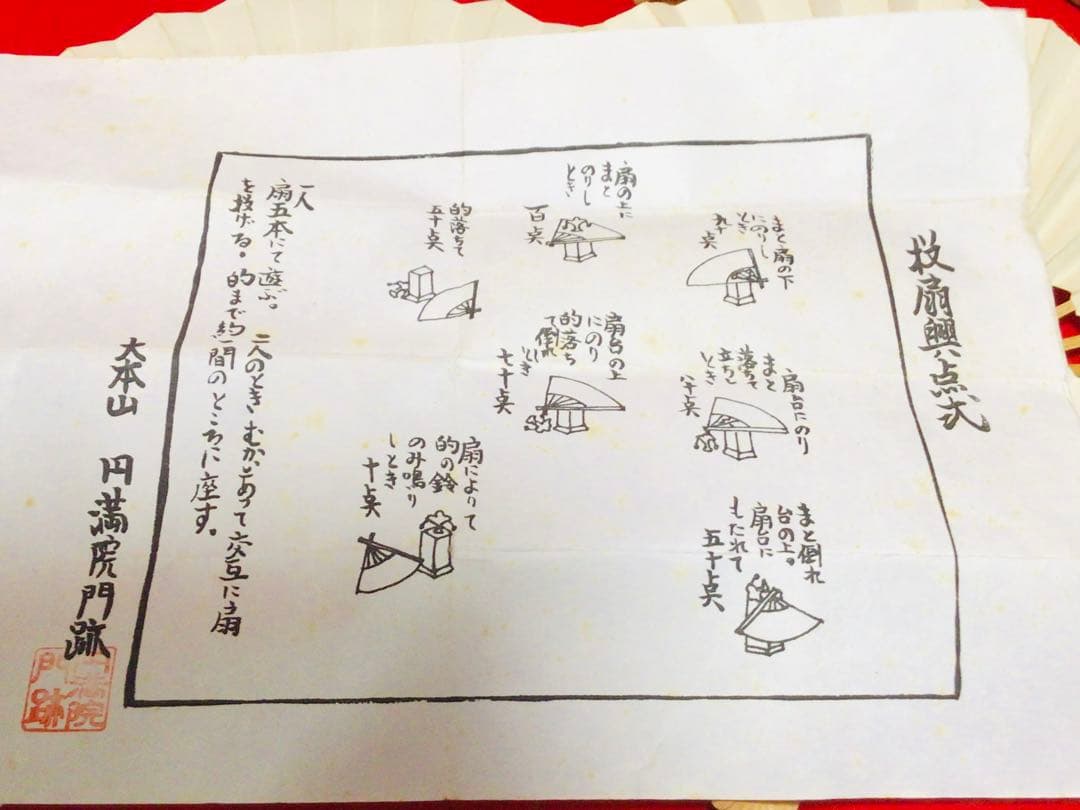 投扇興点式
まと扇の下
にのりし
とき
九十点
扇の上に
まと
のりし
とき
百点
的落ちて
五十点
扇台にのり
まと
落ちて
立ちしとき
八十点
扇台の上
にのり
的落ち
て倒れ
しとき
七十点
まと倒れ
台の上。
扇台に
もたれて
五十点
扇によりて
的の鈴
のみ鳴り
しとき
十点
一人
扇五本にて遊ぶ。二人のときむかいあって交互に扇
を投げる。的まで約一間のところに座す。
大本山 円満院門跡
円満院
門跡